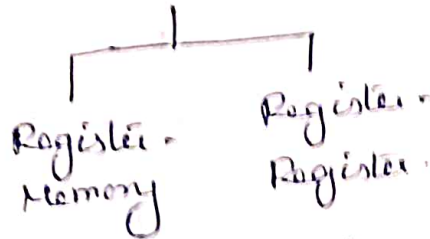 Register-
Memory
Register-
Register.